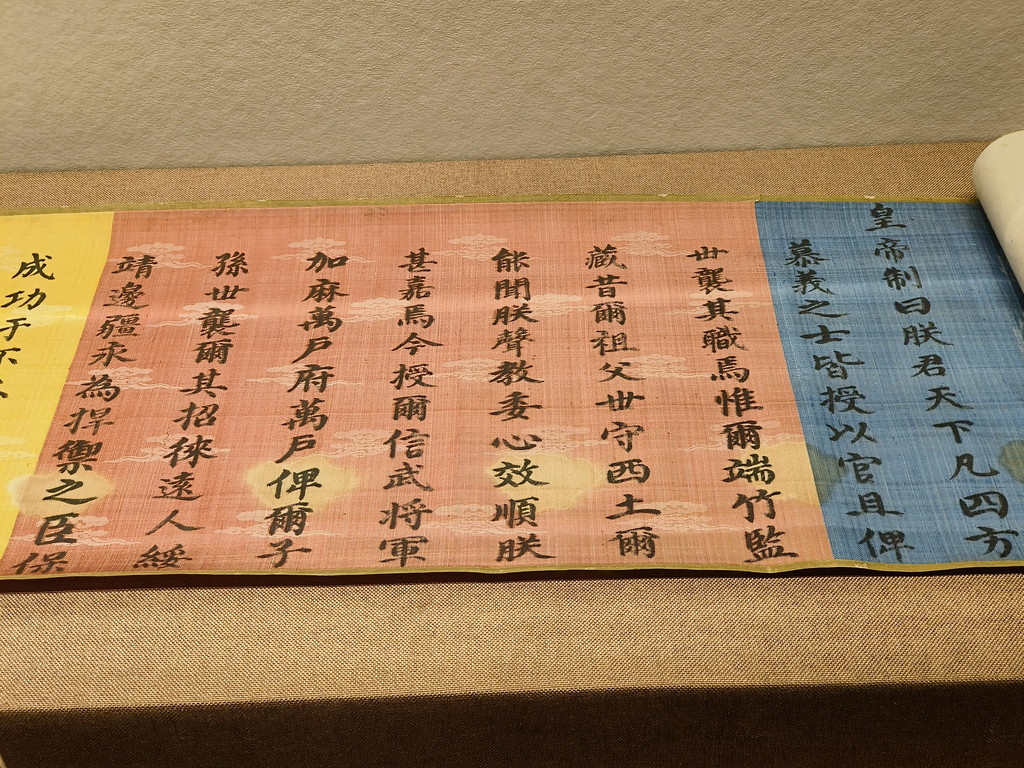 皇帝制曰朕君天下凡四方
慕義之士皆授以官且俾
世襲其職焉惟爾端竹監
藏昔爾祖父世守西土爾
能聞朕聲教委心效順朕
甚嘉焉今授爾信武將軍
加麻萬戶府萬戶俾爾子
孫世襲爾其招徠遠人綏
靖邊疆永為捍禦之臣保
成功于不